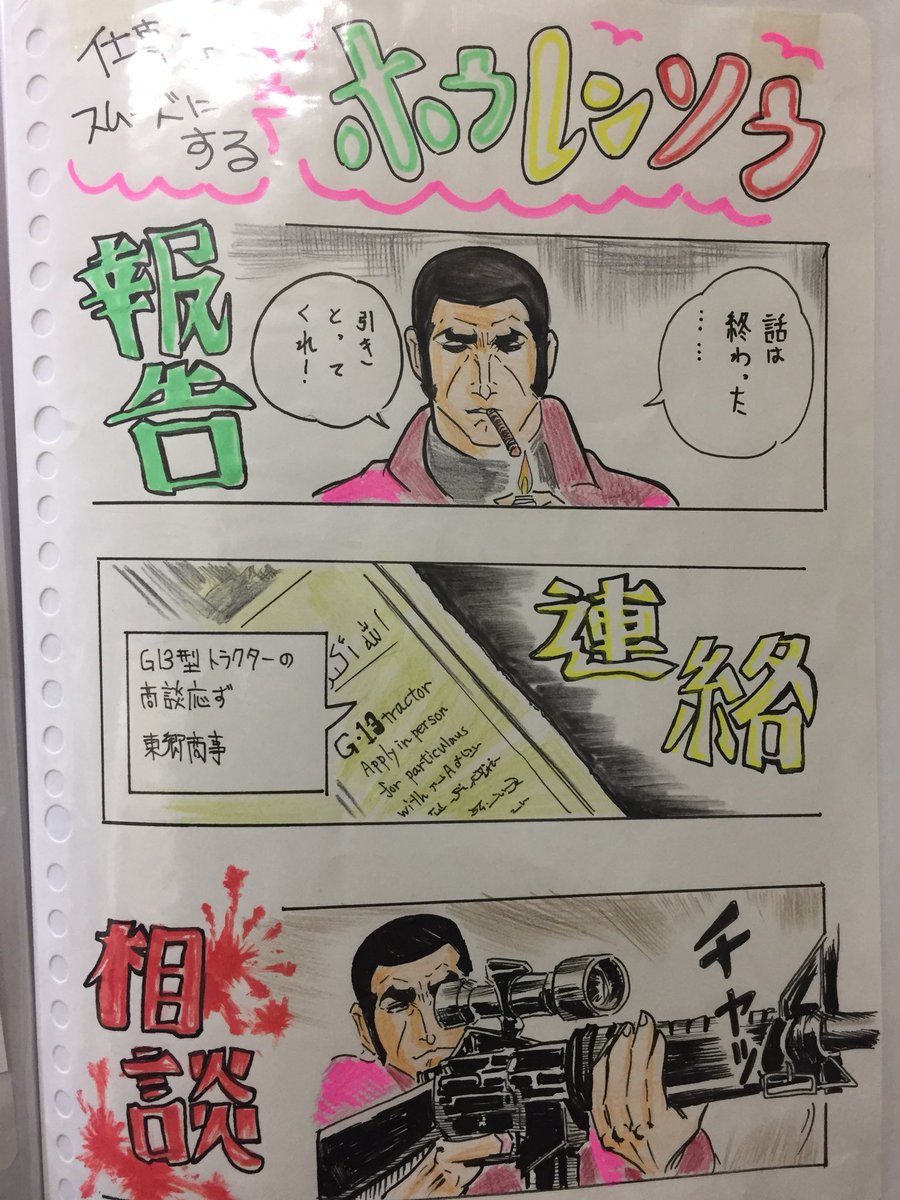 仕事
スムーズに
する
ホウレンソウ
報告
話は
終わった
……
引き
とって
くれ！
連絡
G13型トラクターの
商談応ず
東郷商事
G-13 tractor
Apply in person
for particulaus
with
相談
チャッ